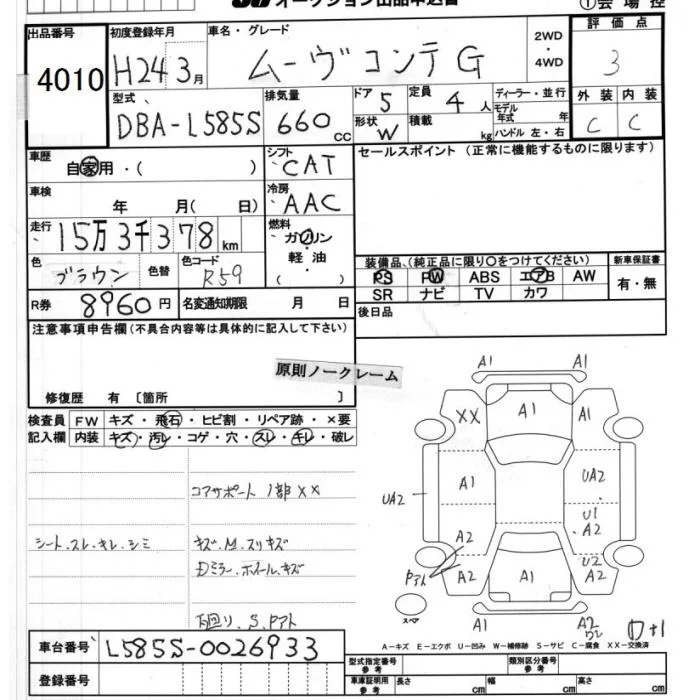 オークション出品申込書
①会場控
出品番号
4010
初度登録年月
H24 3月
車名・グレード
ムーヴコンテ G
2WD
・
4WD
評価点
3
型式
DBA-L585S
排気量
660 CC
ドア 5
定員 4 人
形状 W
積載 kg
ディーラー・並行
モデル年式 年
ハンドル 左・右
外装 内装
C C
車歴
自家用・( )
シフト
CAT
セールスポイント (正常に機能するものに限ります)
車検
年 月( 日)
冷房
AAC
走行
15万3千378km
燃料
ガソリン
・
軽油
( )
色
ブラウン
色替
色コード
R59
装備品、(純正品に限り○をつけてください)
PS PW ABS エアB AW
SR ナビ TV カワ
新車保証書
有・無
R券
8960円
名変通知期限 月 日
後日品
注意事項申告欄(不具合内容等は具体的に記入して下さい)
原則ノークレーム
修復歴 有 〔箇所 〕
検査員
記入欄
FW キズ・飛石・ヒビ割・リペア跡・×要
内装 キズ・汚レ・コゲ・穴・スレ・キレ・破レ
コアサポート 1部 XX
シート.スレ.キレ.シミ
キズ.M.スリキズ
Dミラー.ホイール.キズ
下回り.S.Pアト
A1
A1
XX
A1
A1
A1
UA2
UA2
U1
A2
A2
Pアト
A2
A1
U2
A2
スペア
A1
A2
A-キズ E-エクボ U-凹み W-補修跡 S-サビ C-腐食 XX-交換済
車台番号
L585S-0026933
登録番号
型式指定番号
参考
類別区分番号
参考
車庫証明用
参考
長さ cm
幅 cm
高さ cm